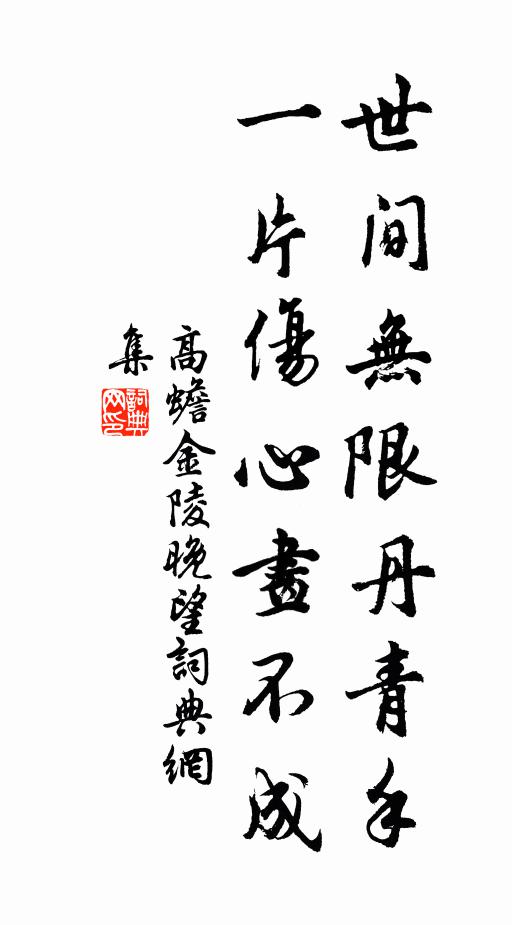 世間無限丹青手
一片傷心畫不成
高蟾金陵晚望詞典網
集
詞典
网印